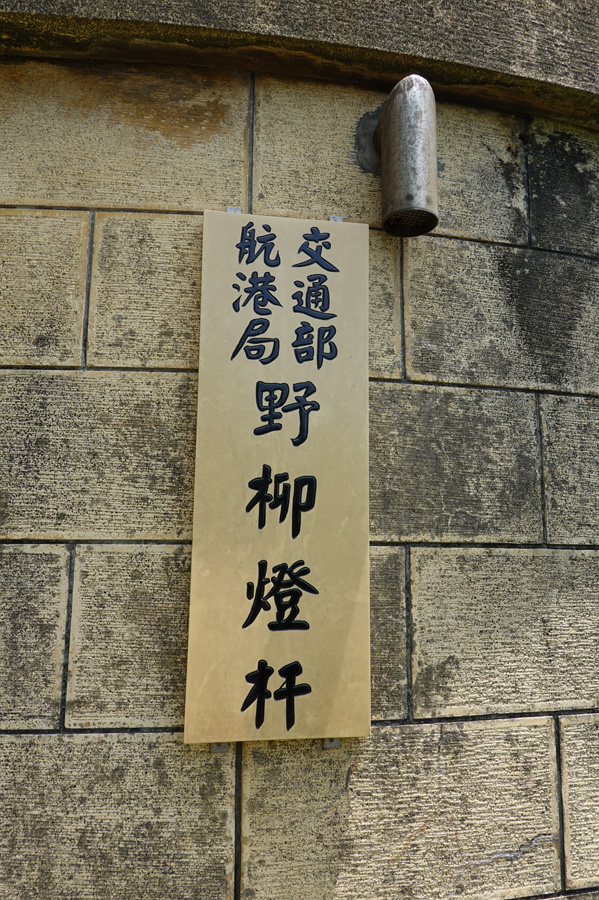 交通部
航港局
野柳燈杆